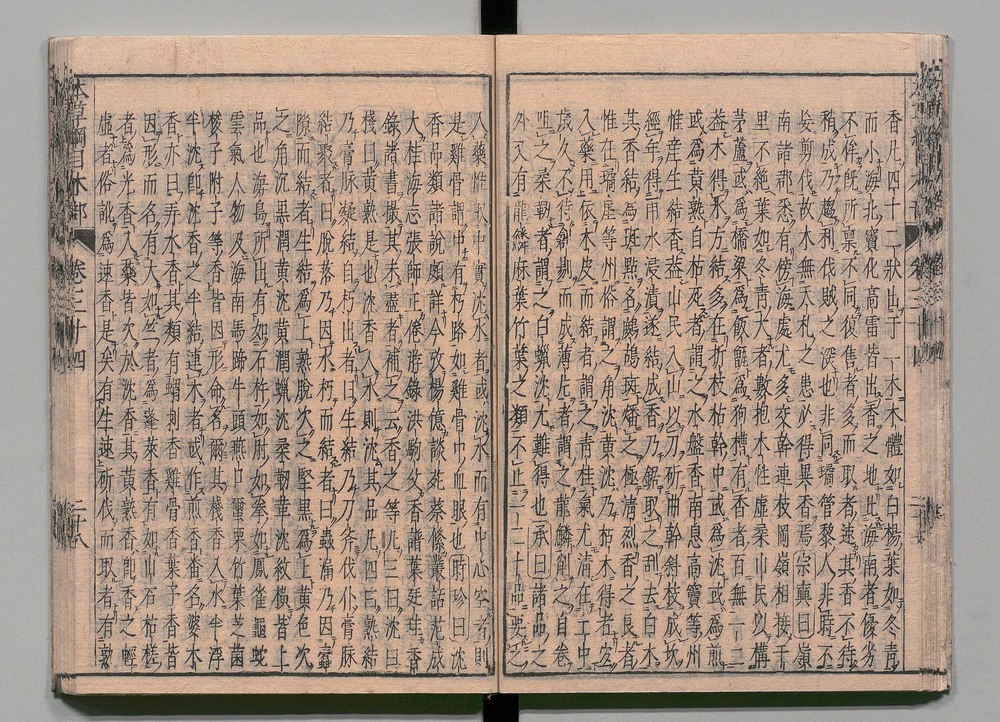 香凡四十二狀出于一木木體如白楊葉如冬青
而小海北竇化高雷皆出香之地比海南者優劣
不侔既所稟不同復售者多而取者速其香不待
稍成乃趨利伐賊之深也非同瓊管黎人非時不
妄剪伐故木無夭札之患必得異香焉宗奭曰嶺
南諸郡悉有傍海處尤多交幹連枝岡嶺相接千
里不絕葉如冬青大者數抱木性虛柔山民以構
茅廬或爲橋梁爲飯甑爲狗槽有香者百無一二
葢木得水方結多在折枝枯幹中或爲沈或爲煎
或爲黃熟自枯死者謂之水盤香南息高竇等州
惟產生結香葢山民入山以刀斫曲幹斜枝成坎
經年得雨水浸漬遂結成香乃鋸取之刮去白木
其香結爲斑點名鷓鴣斑燔之極清烈香之良者
惟在瓊崖等州俗謂之角沈黃沈乃枯木得者宜
入藥用依木皮而結者謂之青桂氣尤清在土中
歲久不待剜剔而成薄片者謂之龍鱗削之自卷
咀之柔韌者謂之白蠟沈尤難得也承曰諸品之
外又有龍鱗麻葉竹葉之類不止一二十品要之
入藥惟取中實沈水者或沈水而有中心空者則
是雞骨謂中有朽路如雞骨中血眼也時珍曰沈
香品類諸說頗詳今攷楊億談苑蔡絛叢話范成
大桂海志張師正倦游錄洪駒父香譜葉廷珪香
錄諸書撮其未盡者補之云香之等凡三曰沈曰
棧曰黃熟是也沈香入水則沈其品凡四曰熟結
乃膏脉凝結自朽出者曰生結乃刀斧伐仆膏脉
結聚者曰脫落乃因水朽而結者曰蟲漏乃因蠹
隙而結者生結爲上熟脫次之堅黑爲上黃色次
之角沈黑潤黃沈黃潤蠟沈柔韌革沈紋橫皆上
品也海島所出有如石杵如肘如拳如鳳雀龜蛇
雲氣人物及海南馬蹄牛頭燕口繭栗竹葉芝菌
梭子附子等香皆因形命名爾其棧香入水半浮
半沈卽沈香之半結連木者或作煎香番名婆木
香亦曰弄水香其類有蝟刺香雞骨香葉子香皆
因形而名有大如笠者爲蓬萊香有如山石枯槎
者爲光香入藥皆次於沈香其黃熟香卽香之輕
虛者俗訛爲速香是矣有生速斫伐而取者有熟
本草綱目木部 卷三十四 二十八